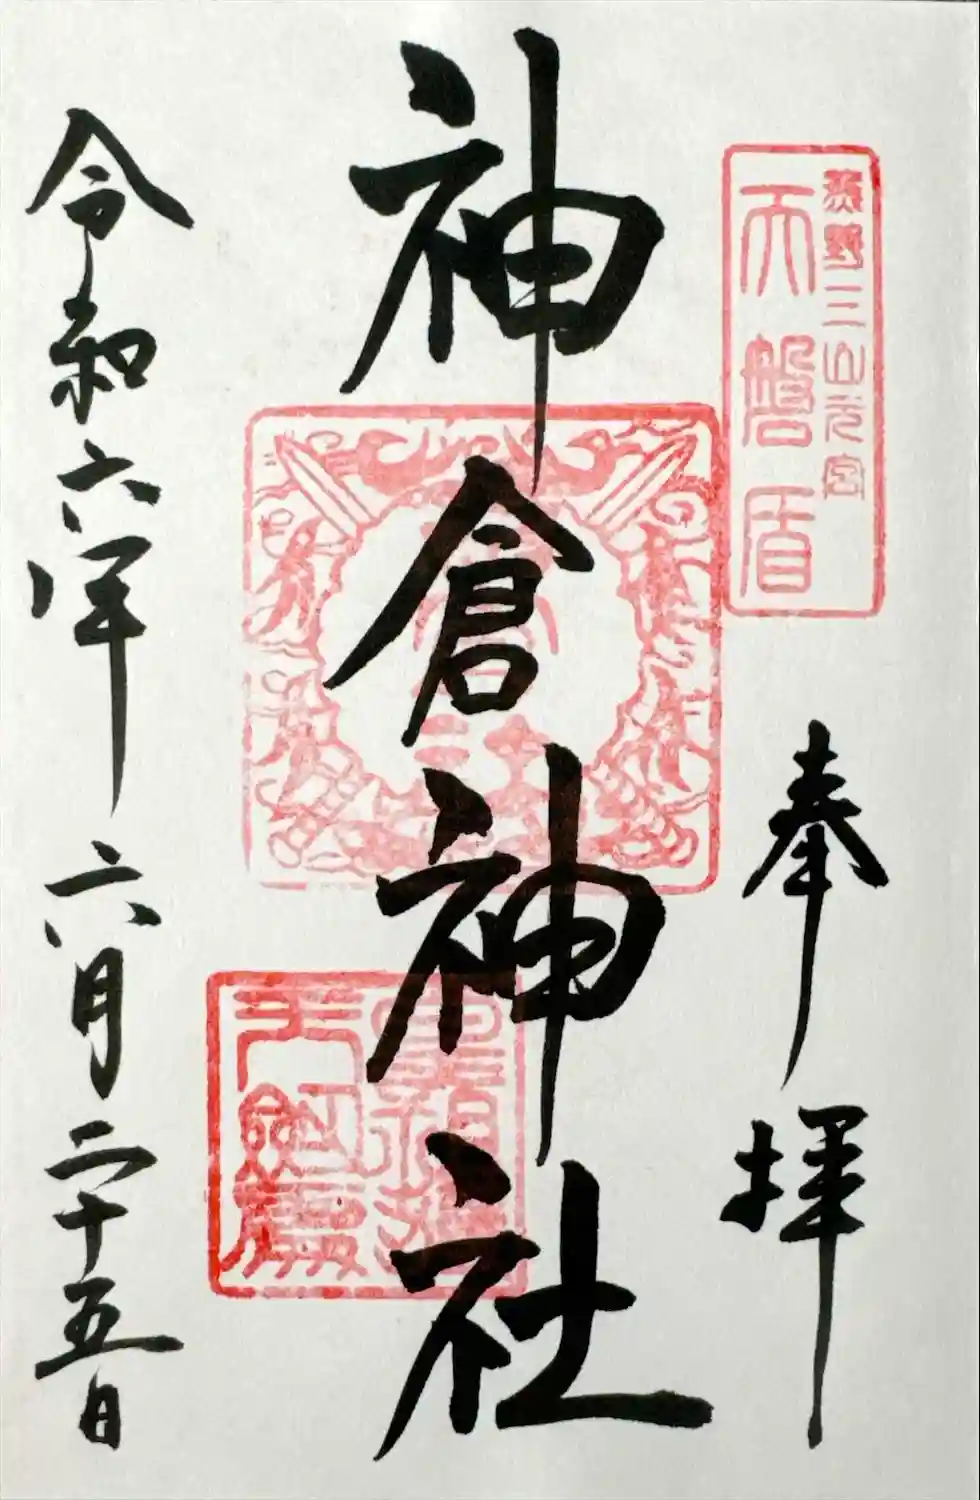 熊野三山元宮
天磐盾
奉拝
神倉神社
令和六年六月二十五日